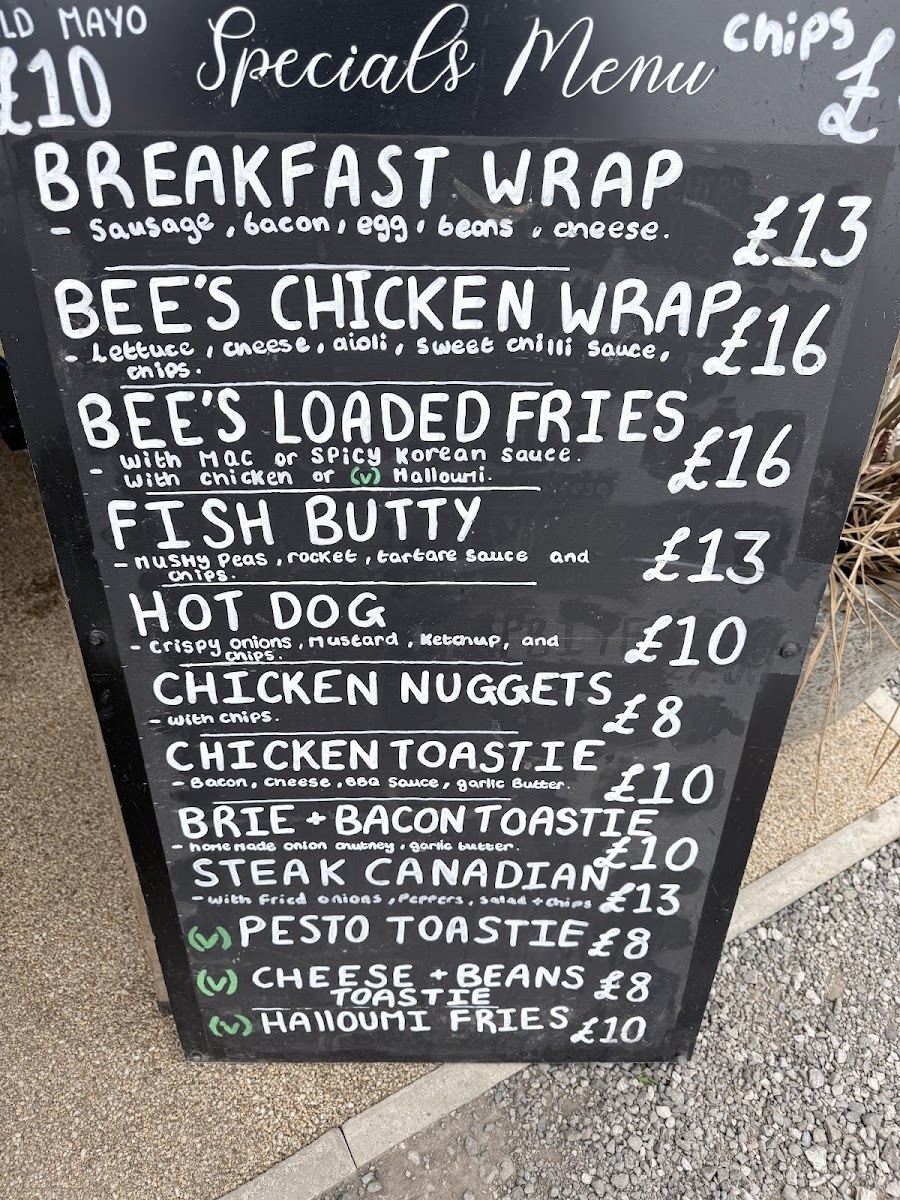 MAYO
£10
Specials Menu
chips
£
BREAKFAST WRAP
- Sausage, bacon, egg, beans, cheese.
£13
BEE'S CHICKEN WRAP
£16
- Lettuce, cheese, aioli, sweet chilli sauce,
chips.
BEE'S LOADED FRIES
- With MAC or SPICY Korean sauce.
With chicken or (v) Halloumi.
£16
FISH BUTTY
- MUSHY Peas, rocket, tartare sauce and
chips.
£13
HOT DOG
- Crispy onions, Mustard, Ketchup, and
chips.
£10
CHICKEN NUGGETS
- With chips.
£8
CHICKEN TOASTIE
- Bacon, cheese, BBQ Sauce, garlic Butter.
£10
BRIE + BACON TOASTIE
- home made onion chutney, garlic butter.
£10
STEAK CANADIAN
- With Fried onions, Peppers, salad + chips
£13
(v) PESTO TOASTIE £8
(v) CHEESE + BEANS £8
TOASTIE
(v) HAllOUMI FRIES £10